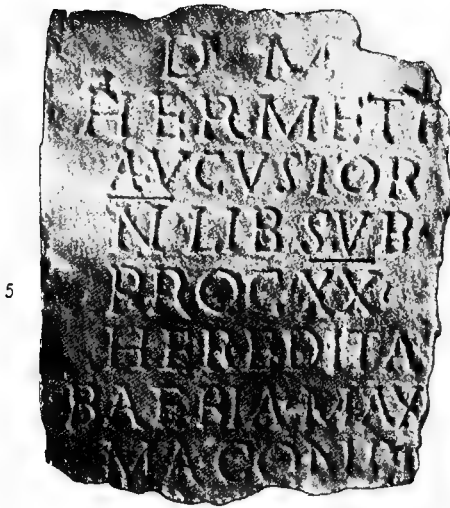 D M
HERMETI
AVGVSTOR
N LIB SVB
PROC XX
HEREDITA
BAEBIA MAX
MA CONIVI
5